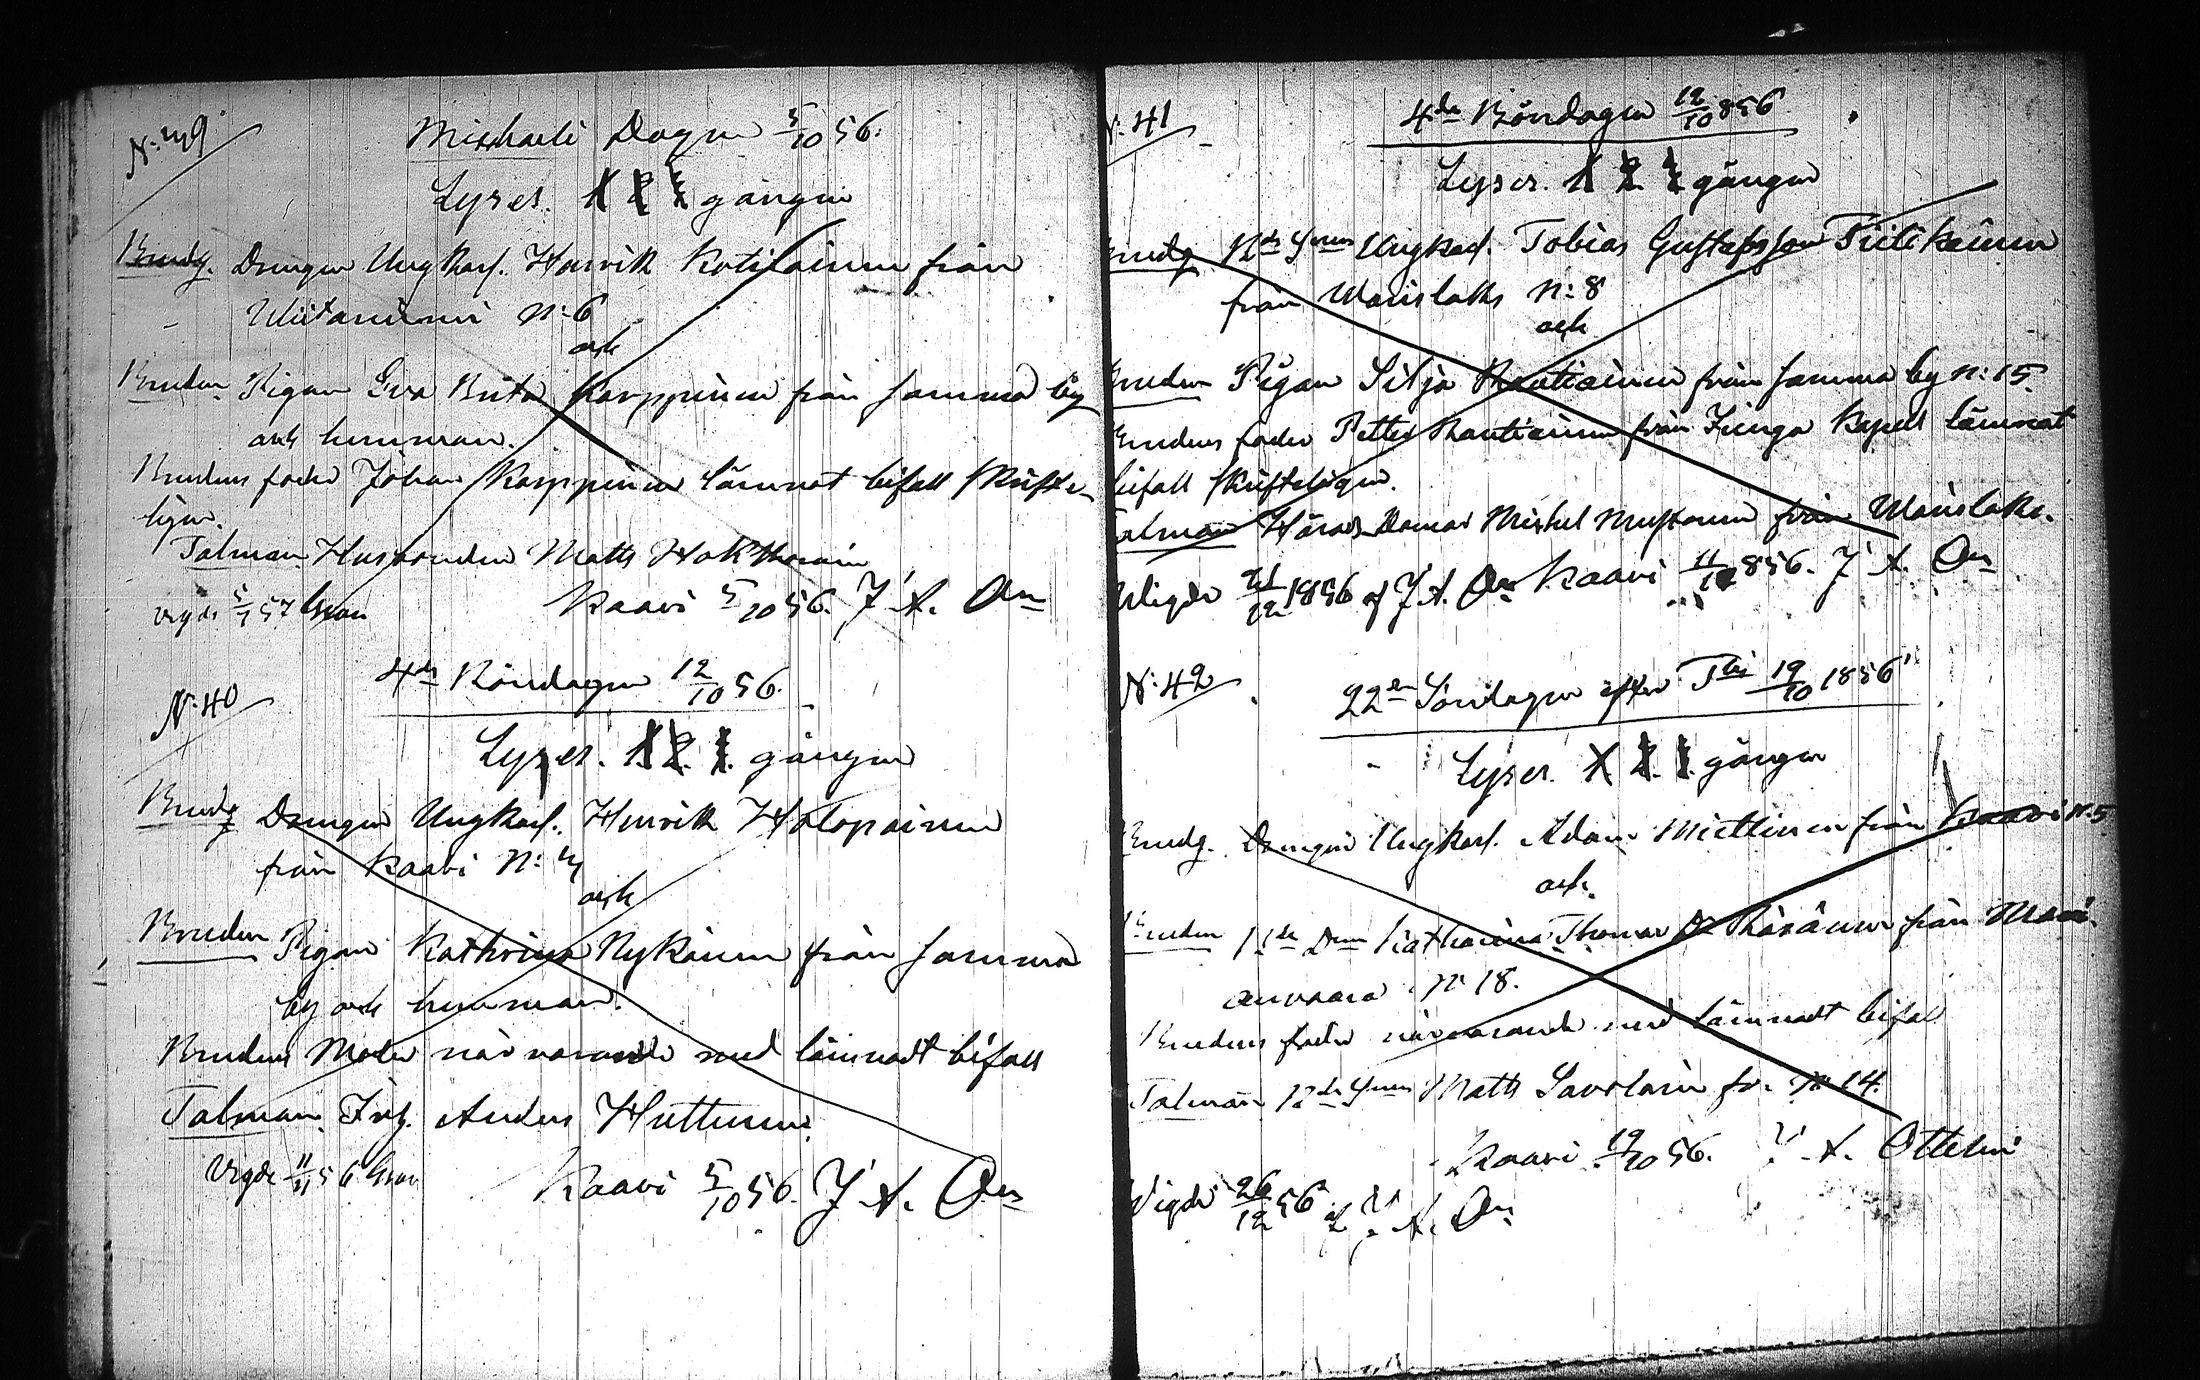 N: 39
Michaeli Dagen 5/10 56.
Lyses. 1 2 3 gången
Brudg. Drengen Ungkarl. Henrik Kotilainen från
Wiitaniemi N: 6
och
Bruden Pigan Eva Brita Karppinen från samma by
och hemman.
Brudens fader Johan Karppinen lämnat bifall skrifte-
ligen.
Talman Husbonden Matts Hakkarain
Vigde 5/1 57
Kaavi 5/10 56. J. A. On
N: 40
4de Böndagen 12/10 56.
Lyses. 1. 2. 3. gången
Brudg Drengen Ungkarl. Henrik Holopainen
från Kaavi N: 4
och
Bruden Pigan Kathrina Nykänen från samma
by och hemman.
Brudens Moder närvarande med lämnadt bifall
Talman. Inh. Anders Huttunen.
Vigde 11/11 56
Kaavi 5/10 56. J. A. On
N: 41
4de Böndagen 12/10 856
Lyses. 1 2 3 gången
Brudg Bde Sonen Ungkarl. Tobias Gustafsson Tiilikainen
från Wänislaks N: 8
och
Bruden Pigan Silja Rautiainen från samma by N: 15.
Brudens fader Petter Rautiainen från Junga Kapell lämnat
bifall skrifteligen.
Talman Härads Domar Mickel Mustonen från Wänislaks.
Kaavi 11/10 856. J. A. On
Wigde 21/12 1856 af J. A. On
N: 42
22en Söndagen efter Tbi 19/10 1856
Lyses. 1 2. 3. gången
Brudg. Drengen Ungkarl. Adam Miettinen från Kaavi N. 5
och
Bruden Bde Dtn Katharina Thomas Dr Räsänen från Mari-
anvaara N 18.
Brudens fader närvarande med lämnadt bifall
Talman Bde Sonen Matts Savolain fr. N 14.
Kaavi 19/10 56. J. A. Ottelin
Wigde 26/12 56 af J. A. On